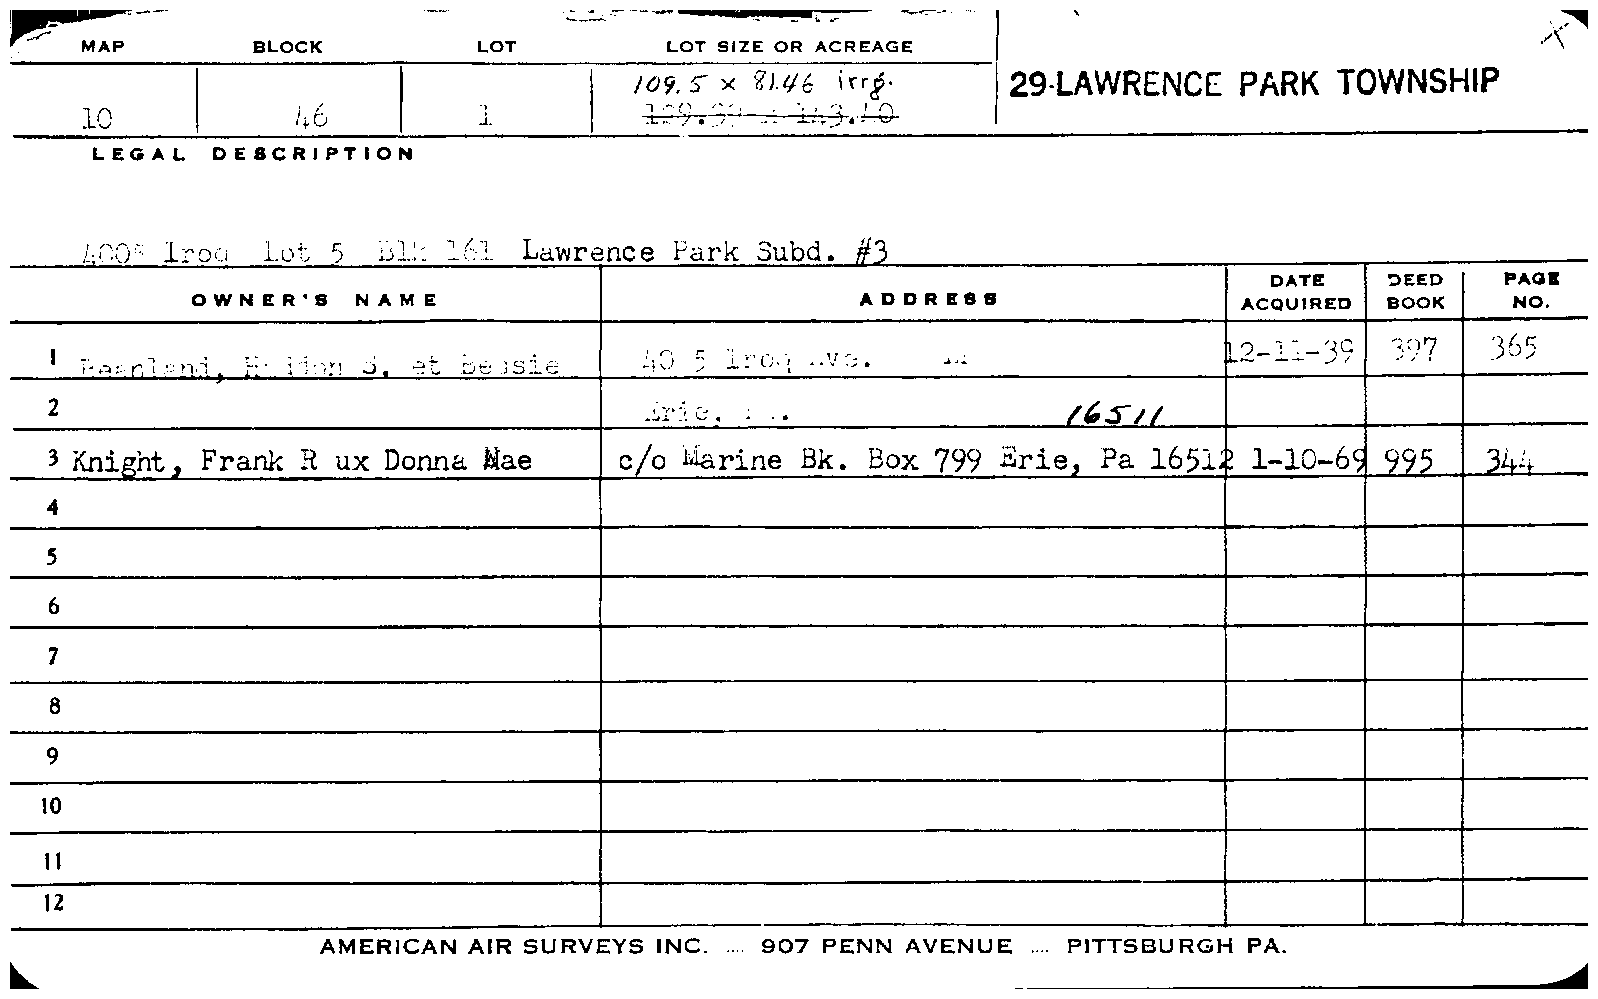 MAP BLOCK LOT LOT SIZE OR ACREAGE
29-LAWRENCE PARK TOWNSHIP
109.5 x 81.46 irrg.
10 46 1
LEGAL DESCRIPTION
4005 Iroq Lot 5 Blk 161 Lawrence Park Subd. #3
OWNER'S NAME ADDRESS DATE ACQUIRED DEED BOOK PAGE NO.
1 S. et Bessie 4005 Iroq Ave. 12-11-39 397 365
2 Erie, 16511
3 Knight, Frank R ux Donna Mae c/o Marine Bk. Box 799 Erie, Pa 16512 1-10-69 995 344
4
5
6
7
8
9
10
11
12
AMERICAN AIR SURVEYS INC. .... 907 PENN AVENUE .... PITTSBURGH PA.